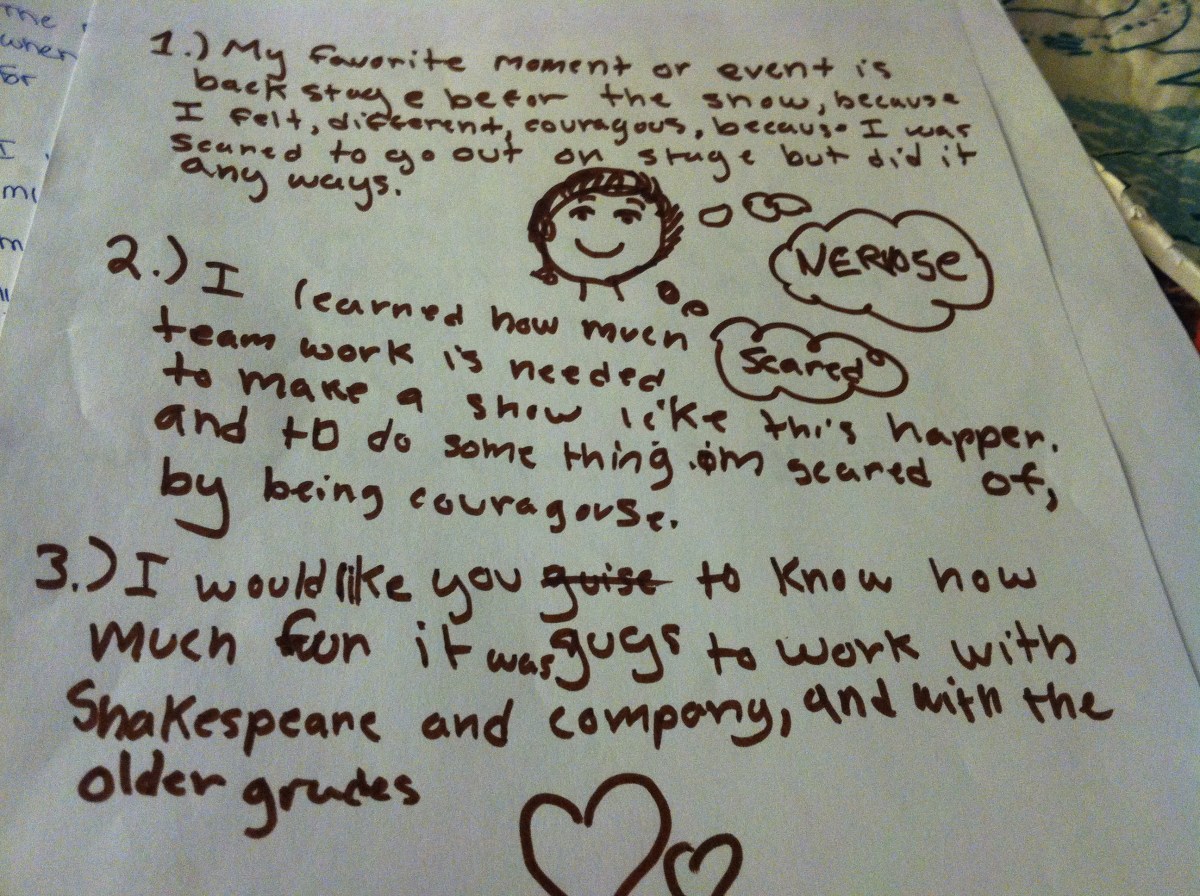 1.) My favorite moment or event is
back stage befor the show, because
I felt, different, couragous, because I was
scared to go out on stage but did it
any ways.
NERVOSE
scared
2.) I learned how much
team work is needed
to make a show like this happen.
and to do some thing im scared of,
by being couragouse.
3.) I would like you guise to know how
much fun it was guys to work with
Shakespeare and company, and with the
older grades
the
when
for
I